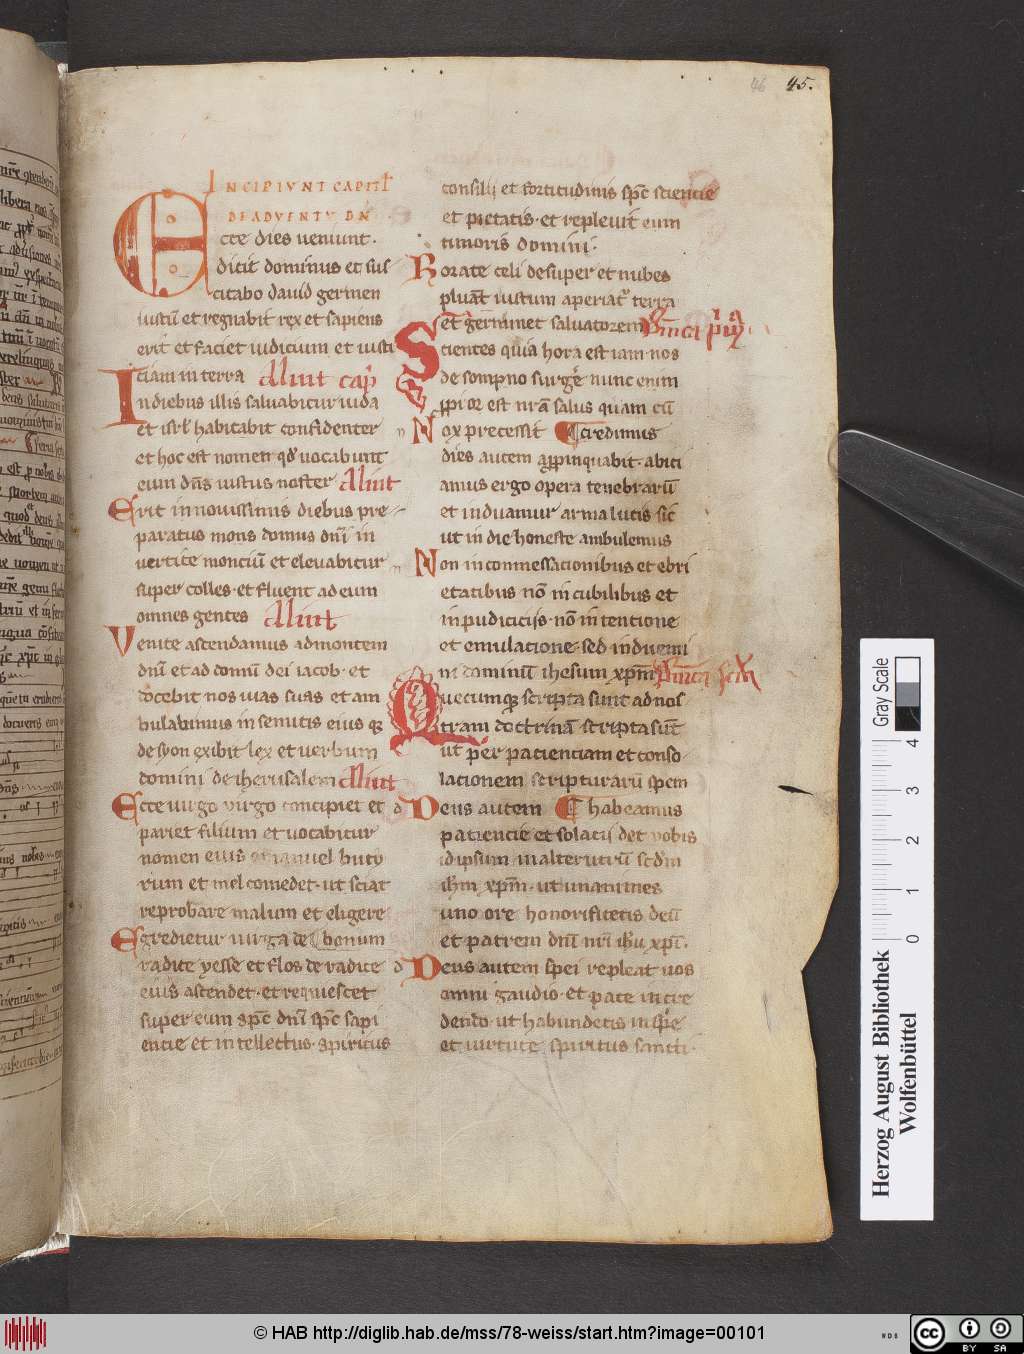 46 45.
INCIPIVNT CAPITL
DE ADVENTV DN
Ecce dies ueniunt·
dicit dominus et sus
citabo dauid germen
iustū et regnabit rex et sapiens
erit et faciet iudicium et iusti
ciam in terra Aliut cap
In diebus illis saluabitur iuda
et isrl habitabit confidenter
et hoc est nomen qđ uocabunt
eum dn̄s iustus noster Aliut
Erit in nouissimis diebus pre
paratus mons domus dn̄i in
uertice monciū et eleuabitur
super colles· et fluent ad eum
omnes gentes Aliut
Venite ascendamus ad montem
dn̄i et ad domū dei iacob· et
docebit nos uias suas et am
bulabimus in semitis eius qꝫ
de syon exibit lex et uerbum
domini de iherusalem Aliut
Ecce uirgo uirgo concipiet et
pariet filium et uocabitur
nomen eius manuel buty
rum et mel comedet· ut sciat
reprobare malum et eligere
Egredietur uirga de bonum
radice yesse et flos de radice
eius ascendet· et requiescet
super eum spc̄ dn̄i spc̄ sapi
encie et intellectus· spiritus
consilij et fortitudinis spc̄ sciencie
et pietatis· et repleuit eum
timoris domini·
Rorate celi desuper et nubes
pluāt iustum aperiat terra
et germinet saluatorem
Scientes quia hora est iam nos
de sompno surge nunc enim
ꝓpior est nr̄a salus quam cū
Nox precessit credimus
dies autem appinquabit· abici
amus ergo opera tenebrarū
et induamur arma lucis sic
ut in die honeste ambulemus
Non in commessacionibus et ebri
etatibus nō in cubilibus et
inpudicicijs· nō in tencione
et emulacione· sed induemi
ni dominū ihesum xpm̄
Quecumqꝫ scripta sunt ad nos
tram doctrinā scripta sūt
ut per pacienciam et conso
lacionem scripturarū spem
d Deus autem habeamus
paciencie et solacij det uobis
idipsum in alterutrū scđm
ihm̄ xpm̄· ut unanimes
uno ore honorificetis deū
et patrem dn̄i nr̄i ihū xpi·
d Deus autem spei repleat uos
omni gaudio· et pace in cre
dendo· ut habundetis in spe
et uirtute spiritus sancti·
Gray Scale
0 1 2 3 4
Herzog August Bibliothek
Wolfenbüttel
© HAB http://diglib.hab.de/mss/78-weiss/start.htm?image=00101
cc BY SA